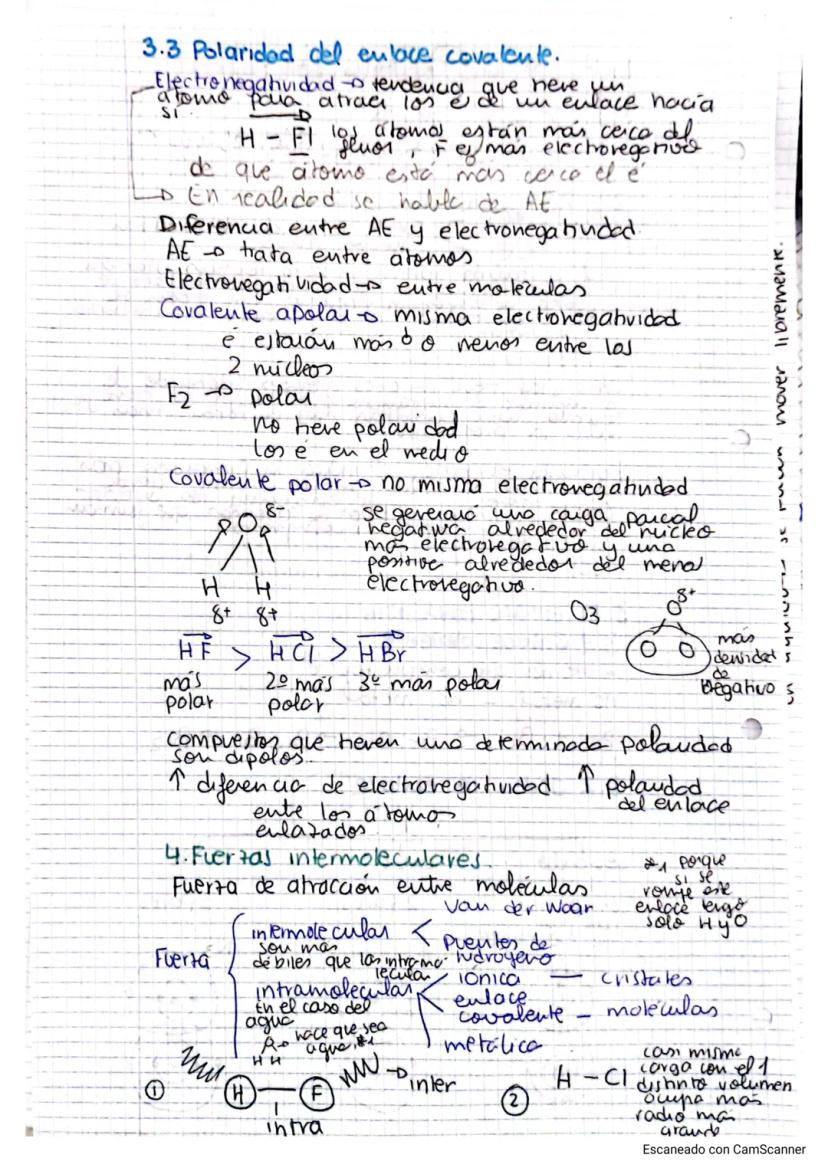 3.3 Polaridad del enlace covalente.
Electronegatividad → tendencia que tiene un
átomo para atraer los é de un enlace hacia
sí.
H - Fl los átomos están más cerca del
fluor, F es más electronegativo
de que átomo está más cerca el é
→ En realidad se habla de AE
Diferencia entre AE y electronegatividad
AE → trata entre átomos
Electronegatividad → entre moléculas
Covalente apolar → misma electronegatividad
é estarán más ó o menos entre los
2 núcleos
F2 → polar
no tiene polaridad
los é en el medio
Covalente polar → no misma electronegatividad
O δ-
H H
δ+ δ+
se generará una carga parcial
negativa alrededor del núcleo
más electronegativo y una
positiva alrededor del menos
electronegativo.
O3
O δ+
O O
más
densidad
de
negativo
HF > HCl > HBr
más polar
2º más polar
3º más polar
mover libremente.
Compuestos que tienen una determinada polaridad
son dipolos.
↑ diferencia de electronegatividad ↑ polaridad
del enlace
ente los átomos
enlazados
4. Fuerzas intermoleculares.
Fuerza de atracción entre moléculas
*1 porque
si se
rompe este
enlace tengo
solo H y O
Fuerza
intermoleculares
son más
débiles que las intramo-
lecular
Van der Waar
Puentes de
hidrogeno
intramolecular
En el caso del
agua
hace que sea
agua *1
H H
iónica — cristales
enlace
covalente - moléculas
metálica
① H — F → inter
intra
② H - Cl
casi misma
carga con el 1
distinto volumen
ocupa más
radio más
grande
Escaneado con CamScanner